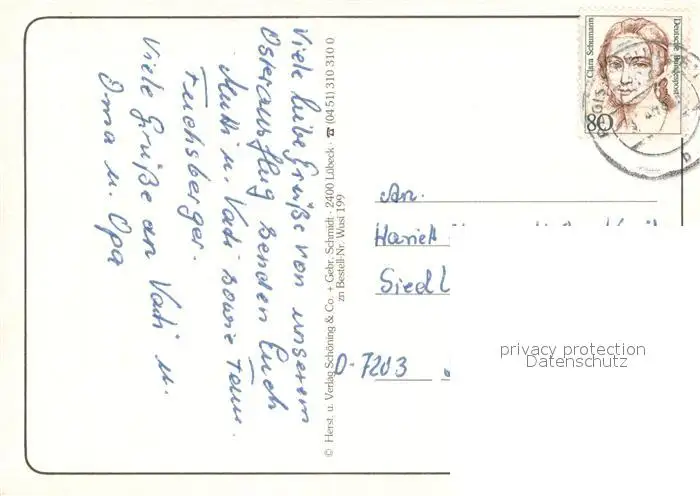 Viele liebe Grüße von unserem
Osterausflug senden Euch
Mutti u. Vati sowie Fam.
Fuchsberger.
Viele Grüße an Vati u.
Oma u. Opa
© Herst. u. Verlag Schöning & Co. + Gebr. Schmidt · 2400 Lübeck · ☎ (04 51) 310 310 0
zn Bestell-Nr. Wusi 199
Clara Schumann
Deutsche Bundespost
80
An.
Siedl
D-7203
privacy protection
Datenschutz